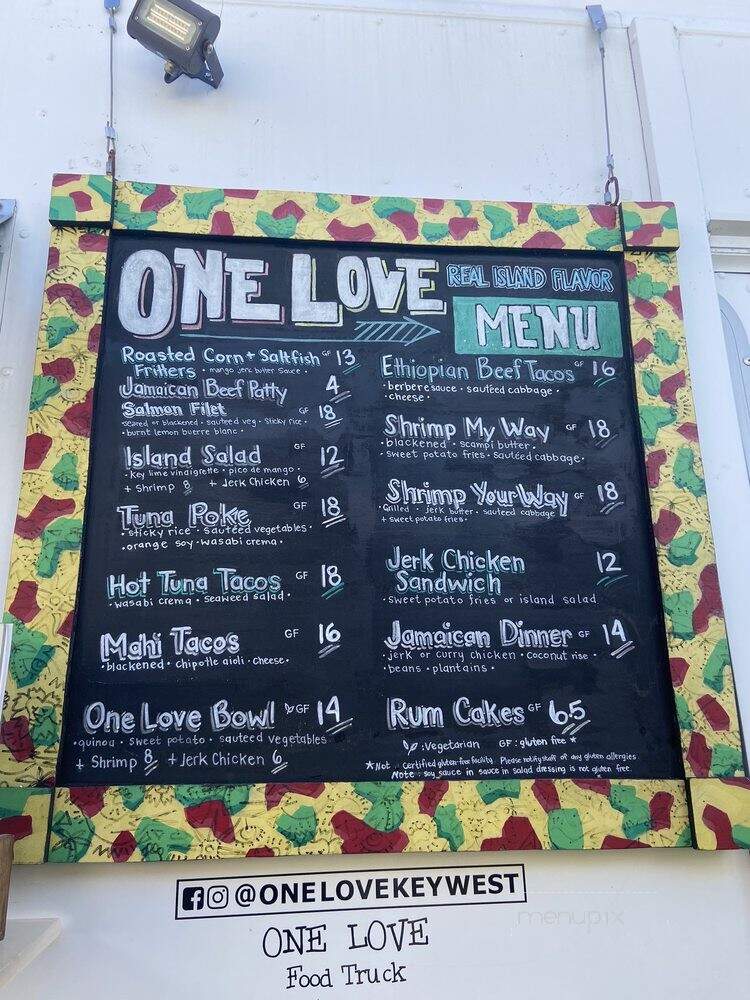 ONE LOVE
REAL ISLAND FLAVOR
MENU
Roasted Corn + Saltfish GF 13
Fritters • mango jerk butter sauce •
Jamaican Beef Patty 4
Salmon Filet GF 18
• seared or blackened • sauteed veg • sticky rice •
• burnt lemon buerre blanc •
Island Salad GF 12
• key lime vinaigrette • pico de mango •
+ Shrimp 8 + Jerk Chicken 6
Tuna Poke GF 18
• sticky rice • sauteed vegetables •
• orange soy • wasabi crema •
Hot Tuna Tacos GF 18
• wasabi crema • seaweed salad •
Mahi Tacos GF 16
• blackened • chipotle aioli • cheese •
One Love Bowl GF 14
• quinoa • sweet potato • sauteed vegetables
+ Shrimp 8 + Jerk Chicken 6
Ethiopian Beef Tacos GF 16
• berbere sauce • sautéed cabbage •
• cheese •
Shrimp My Way GF 18
• blackened • scampi butter •
• sweet potato fries • sautéed cabbage •
Shrimp Your Way GF 18
• Grilled • jerk butter • sauteed cabbage
+ sweet potato fries •
Jerk Chicken 12
Sandwich
• sweet potato fries or island salad
Jamaican Dinner GF 14
• jerk or curry chicken • coconut rise •
• beans • plantains •
Rum Cakes GF 6.5
: Vegetarian GF : gluten free *
* Not Certified gluten-free facility. Please notify staff of any gluten allergies
Note : soy sauce in sauce in salad dressing is not gluten free.
@ONELOVEKEYWEST
ONE LOVE
Food Truck
menupix